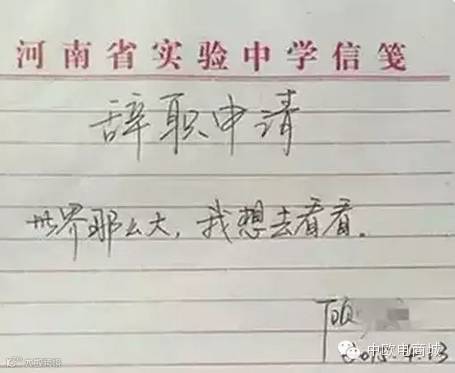 河南省实验中学信笺
辞职申请
世界那么大，我想去看看。
顾
2015.4.13
中欧电商城